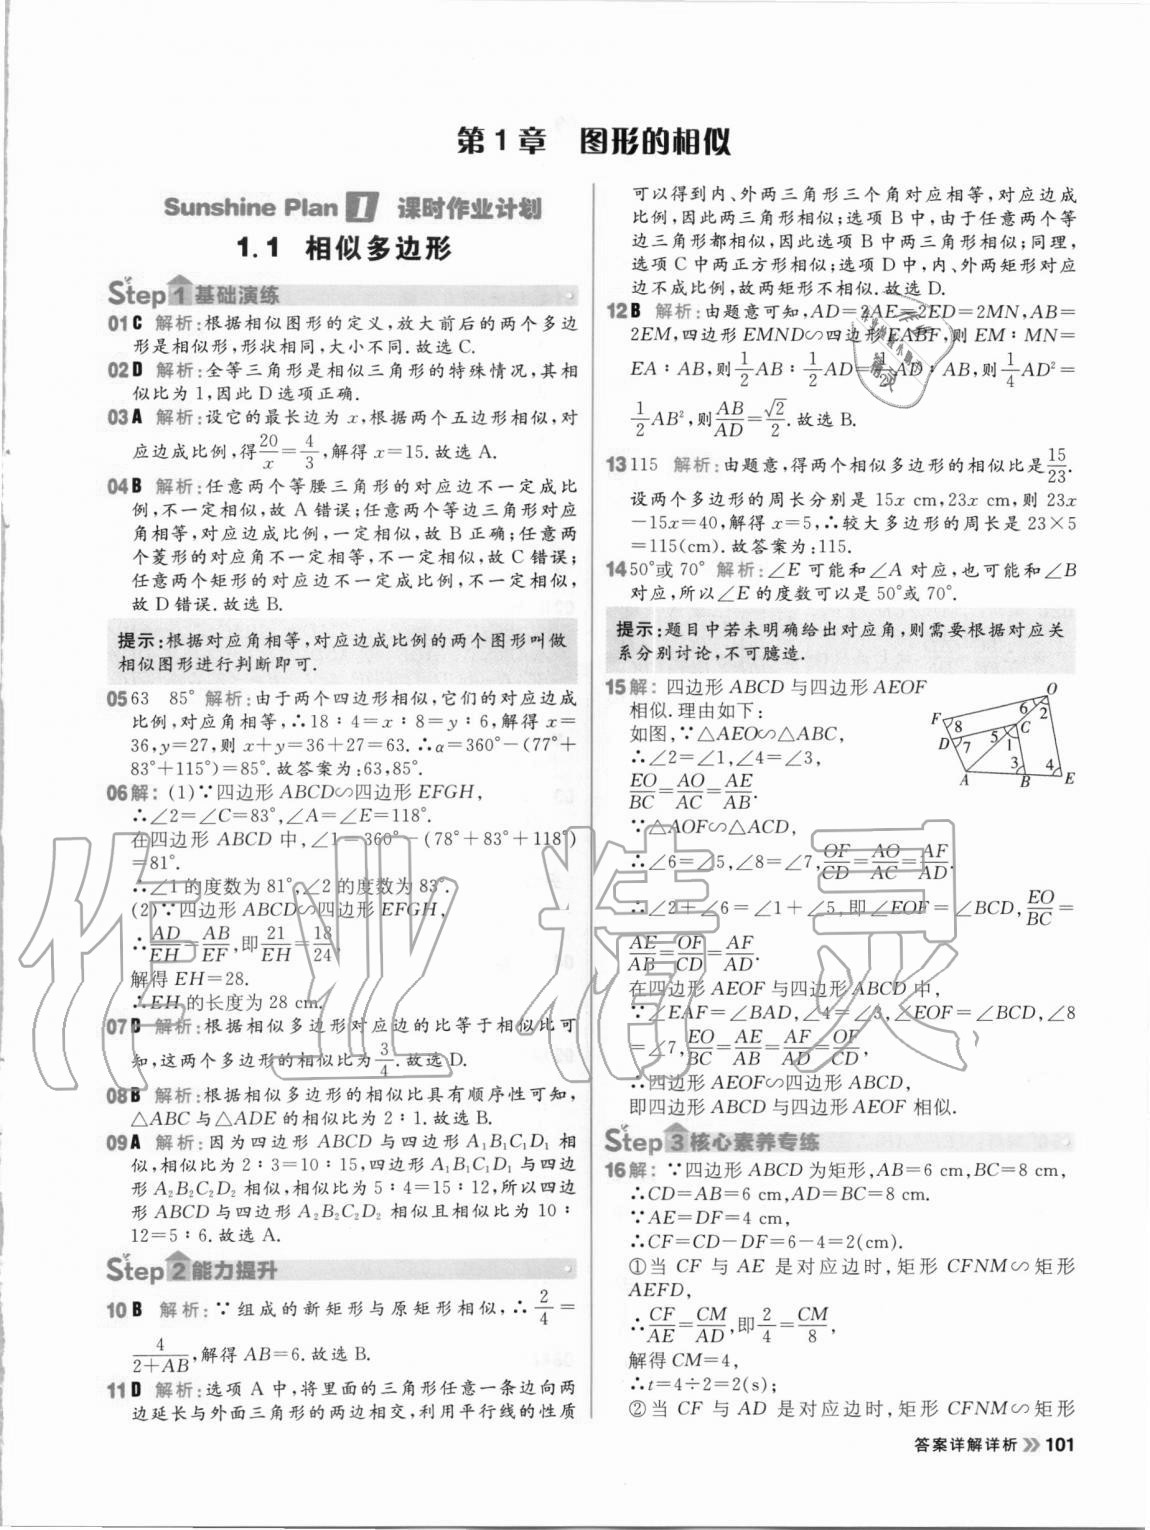 第1章 图形的相似
Sunshine Plan 1 课时作业计划
1.1 相似多边形
Step 1 基础演练
01 C 解析:根据相似图形的定义,放大前后的两个多边
形是相似形,形状相同,大小不同.故选C.
02 D 解析:全等三角形是相似三角形的特殊情况,其相
似比为1,因此D选项正确.
03 A 解析:设它的最长边为x,根据两个五边形相似,对
应边成比例,得20/x=4/3,解得x=15.故选A.
04 B 解析:任意两个等腰三角形的对应边不一定成比
例,不一定相似,故A错误;任意两个等边三角形对应
角相等,对应边成比例,一定相似,故B正确;任意两
个菱形的对应角不一定相等,不一定相似,故C错误;
任意两个矩形的对应边不一定成比例,不一定相似,
故D错误.故选B.
提示:根据对应角相等,对应边成比例的两个图形叫做
相似图形进行判断即可.
05 63 85° 解析:由于两个四边形相似,它们的对应边成
比例,对应角相等,∴18∶4=x∶8=y∶6,解得x=
36,y=27,则x+y=36+27=63.∴α=360°-(77°+
83°+115°)=85°.故答案为:63,85°.
06 解:(1)∵四边形ABCD∽四边形EFGH,
∴∠2=∠C=83°,∠A=∠E=118°.
在四边形ABCD中,∠1=360°-(78°+83°+118°)
=81°.
∴∠1的度数为81°,∠2的度数为83°.
(2)∵四边形ABCD∽四边形EFGH,
∴AD/EH=AB/EF,即21/EH=18/24,
解得EH=28.
∴EH的长度为28 cm.
07 D 解析:根据相似多边形对应边的比等于相似比可
知,这两个多边形的相似比为3/4.故选D.
08 B 解析:根据相似多边形的相似比具有顺序性可知,
△ABC与△ADE的相似比为2∶1.故选B.
09 A 解析:因为四边形ABCD与四边形A₁B₁C₁D₁相
似,相似比为2∶3=10∶15,四边形A₁B₁C₁D₁与四边
形A₂B₂C₂D₂相似,相似比为5∶4=15∶12,所以四边
形ABCD与四边形A₂B₂C₂D₂相似且相似比为10∶
12=5∶6.故选A.
Step 2 能力提升
10 B 解析:∵组成的新矩形与原矩形相似,∴2/4=
4/(2+AB),解得AB=6.故选B.
11 D 解析:选项A中,将里面的三角形任意一条边向两
边延长与外面三角形的两边相交,利用平行线的性质
可以得到内、外两三角形三个角对应相等,对应边成
比例,因此两三角形相似;选项B中,由于任意两个等
边三角形都相似,因此选项B中两三角形相似;同理,
选项C中两正方形相似;选项D中,内、外两矩形对应
边不成比例,故两矩形不相似.故选D.
12 B 解析:由题意可知,AD=2AE=2ED=2MN,AB=
2EM,四边形EMND∽四边形EABF,则EM∶MN=
EA∶AB,则1/2AB∶1/2AD=1/2AD∶AB,则1/4AD²=
1/2AB²,则AB/AD=√2/2.故选B.
13 115 解析:由题意,得两个相似多边形的相似比是15/23.
设两个多边形的周长分别是15x cm,23x cm,则23x
-15x=40,解得x=5,∴较大多边形的周长是23×5
=115(cm).故答案为:115.
14 50°或70° 解析:∠E可能和∠A对应,也可能和∠B
对应,所以∠E的度数可以是50°或70°.
提示:题目中若未明确给出对应角,则需要根据对应关
系分别讨论,不可臆造.
15 解:四边形ABCD与四边形AEOF
相似.理由如下:
如图,∵△AEO∽△ABC,
∴∠2=∠1,∠4=∠3,
EO/BC=AO/AC=AE/AB.
O F 6 2 8 C D 7 5 1 3 4 A B E
∵△AOF∽△ACD,
∴∠6=∠5,∠8=∠7,OF/CD=AO/AC=AF/AD.
∴∠2+∠6=∠1+∠5,即∠EOF=∠BCD,EO/BC=
AE/AB=OF/CD=AF/AD.
在四边形AEOF与四边形ABCD中,
∵∠EAF=∠BAD,∠4=∠3,∠EOF=∠BCD,∠8
=∠7,EO/BC=AE/AB=AF/AD=OF/CD,
∴四边形AEOF∽四边形ABCD,
即四边形ABCD与四边形AEOF相似.
Step 3 核心素养专练
16 解:∵四边形ABCD为矩形,AB=6 cm,BC=8 cm,
∴CD=AB=6 cm,AD=BC=8 cm.
∵AE=DF=4 cm,
∴CF=CD-DF=6-4=2(cm).
①当CF与AE是对应边时,矩形CFNM∽矩形
AEFD,
∴CF/AE=CM/AD,即2/4=CM/8,
解得CM=4,
∴t=4÷2=2(s);
②当CF与AD是对应边时,矩形CFNM∽矩形
答案详解详析 101
作业精灵